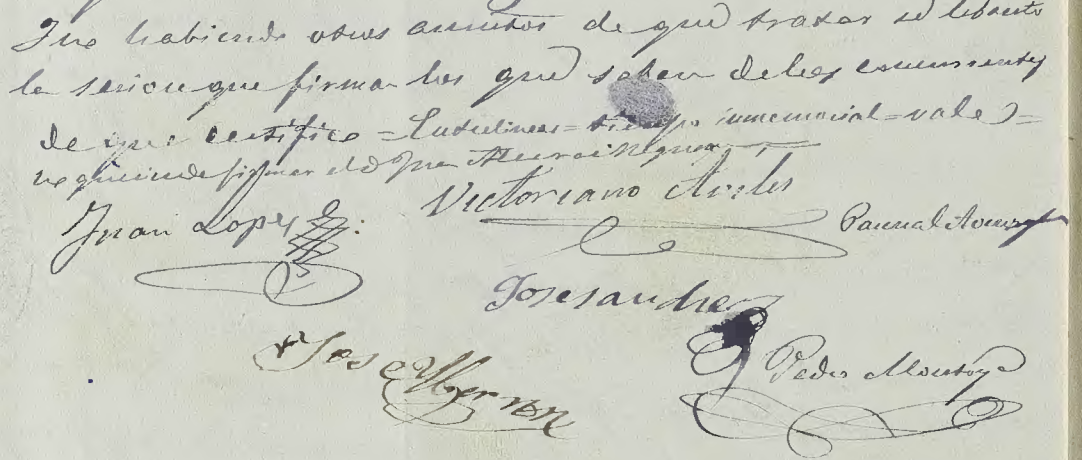 Y no habiendo otros asuntos de que tratar se lebanto
la sesion que firman los que saben de los concurrentes
de que certifico = Entrelineas = tiempo inmemorial = vale =
no quiriendo firmar el d Juan
Juan Lopez
Victoriano Aviles
Pascual
Jose sanchez
Jose Ybernon
Pedro Montoya